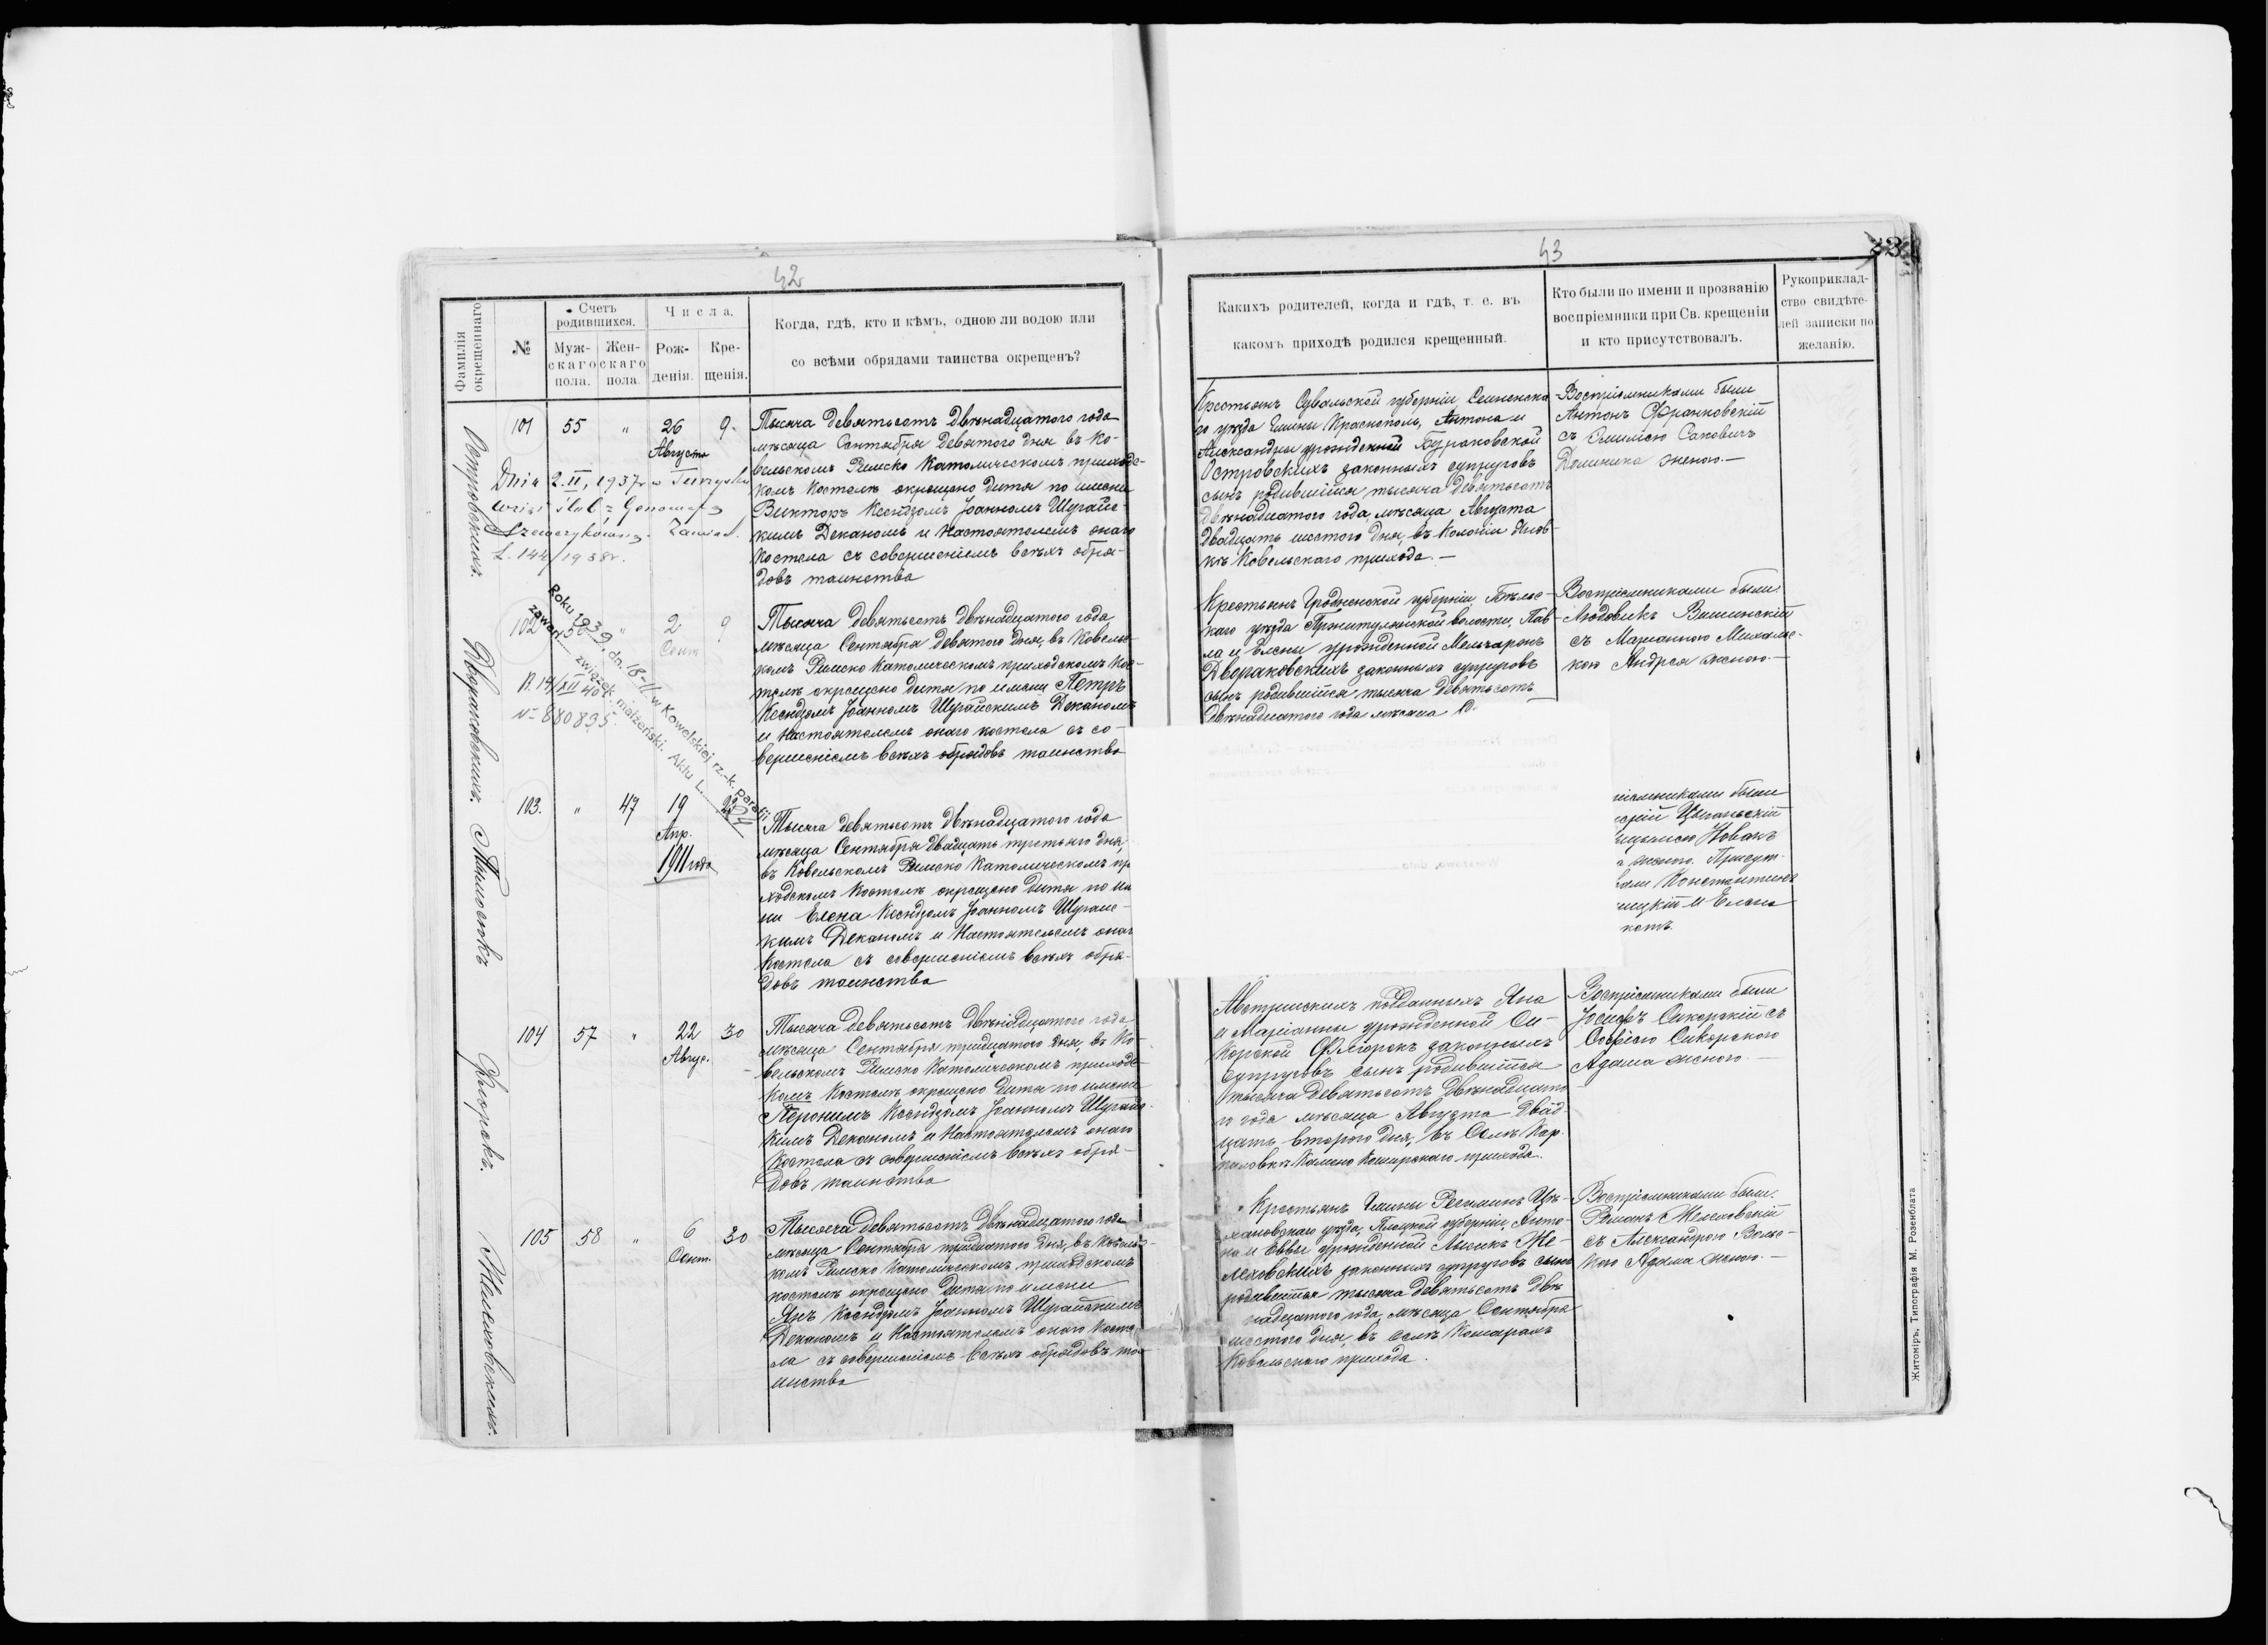 42
Фамилія окрещеннаго
№
Счетъ родившихся.
Муж-
скаго
пола.
Жен-
скаго
пола.
Числа.
Рож-
денія.
Кре-
щенія.
Когда, гдѣ, кто и кѣмъ, одною ли водою или
со всѣми обрядами таинства окрещенъ?
Островскихъ.
101 55 " 26 9.
Августа
Тысяча девятьсотъ двѣнадцатого года
мѣсяца Сентября девятого дня въ Ко-
вельскомъ Римско Католическомъ приходс-
комъ Костелѣ окрещено дитя по имени
Викторъ Ксендзомъ Іоанномъ Шурайс-
кимъ Деканомъ и Настоятелемъ онаго
Костела съ совершеніемъ всѣхъ обря-
довъ таинства
Dnia 2.II, 1937r w
wziął ślub z Genowefą
L. 144/1938r.
Двораковскихъ.
102 56 " 2 9
Сент
Тысяча девятьсотъ двѣнадцатого года
мѣсяца Сентября девятого дня, въ Ковельс-
комъ Римско Католическомъ приходскомъ Кос-
телѣ окрещено дитя по имени Петръ
Ксендзомъ Іоанномъ Шурайскимъ Деканомъ
и Настоятелемъ онаго костела съ со-
вершеніемъ всѣхъ обрядовъ таинства
Roku 1939, dn. 18-II w Kowelskiej rz.-k. parafii
zawarł związek małżeński. Aktu L.
14/XII 40
№ 880835
103. " 47 19 23
Апр.
1911 года
Тысяча девятьсотъ двѣнадцатого года
мѣсяца Сентября двадцать третьяго дня,
въ Ковельскомъ Римско Католическомъ пр
ходскомъ Костелѣ окрещено дитя по им
ни Елена Ксендзомъ Іоанномъ Шурайс-
кимъ Деканомъ и Настоятелемъ онаг
Костела съ совершеніемъ всѣхъ обря-
довъ таинства
104 57 " 22 30
Авгус.
Тысяча девятьсотъ двѣнадцатого года
мѣсяца Сентября тридцатого дня, въ Ко-
вельскомъ Римско Католическомъ приходс-
комъ Костелѣ окрещено дитя по имени
Іеронимъ Ксендзомъ Іоанномъ Шурайс-
кимъ Деканомъ и Настоятелемъ онаго
Костела съ совершеніемъ всѣхъ обря-
довъ таинства
Желеховскихъ.
105 58 " 6 30
Сент.
Тысяча девятьсотъ двѣнадцатого года
мѣсяца Сентября тридцатого дня, въ Ковельс-
комъ Римско Католическомъ приходскомъ
костелѣ окрещено дитя по имени
Янъ Ксендзомъ Іоанномъ Шурайскимъ
Деканомъ и Настоятелемъ онаго Косте-
ла съ совершеніемъ всѣхъ обрядовъ та-
инства
43
Какихъ родителей, когда и гдѣ, т. е. въ
какомъ приходѣ родился крещенный.
Кто были по имени и прозванію
воспріемники при Св. крещеніи
и кто присутствовалъ.
Рукоприклад-
ство свидѣте-
лей записки по
желанію.
Крестьянъ Сувальской губерніи Сейненска
го уѣзда Гмины Краснополь, Антона и
Александры урожденной Бураковской
Островскихъ законныхъ супруговъ
сынъ родившійся тысяча девятьсотъ
двѣнадцатого года, мѣсяца Августа
двадцать шестого дня, въ Колоніи Янов-
кѣ Ковельскаго прихода.—
Воспріемниками были
Антонъ Франковскій
съ Эмиліею Саковичъ
Доминика женою.—
Крестьянъ Гродненской губерніи, Бѣльс-
каго уѣзда волости, Пав-
ла и Елены урожденной
Двораковскихъ законныхъ супруговъ
сынъ родившійся тысяча девятьсотъ
двѣнадцатого года мѣсяца
Воспріемниками были
Людовикъ Вишинскій
съ Маріанною Михальс-
кою Андрея женою.—
ріемниками были
Цыганьскій
Новакъ
женою. Присут-
вали Константинъ
и Елена
Warszawa, dnia
Австрійскихъ подданныхъ Яна
и Маріанны урожденной Си-
корской законныхъ
супруговъ сынъ родившійся
тысяча девятьсотъ двѣнадцато
го года мѣсяца Августа двад-
цать второго дня, въ Селѣ Кар-
пиловкѣ Камено Коширскаго прихода.
Воспріемниками были
Іосифъ Сикорскій съ
Софіею Сикорскою
Адама женою.—
Крестьянъ Гмины Регминъ Цѣ-
хановскаго уѣзда, Плоцкой губерніи, Анто-
на и Еввы урожденной Лысикъ Же-
леховскихъ законныхъ супруговъ сынъ
родившійся тысяча девятьсотъ двѣ
надцатого года, мѣсяца Сентября
шестого дня, въ селѣ Комарахъ
Ковельскаго прихода.
Воспріемниками были
Романъ Желеховскій
съ Александрою Вольс-
кою Адама женою.—
Житоміръ, Типографія М. Розенблата